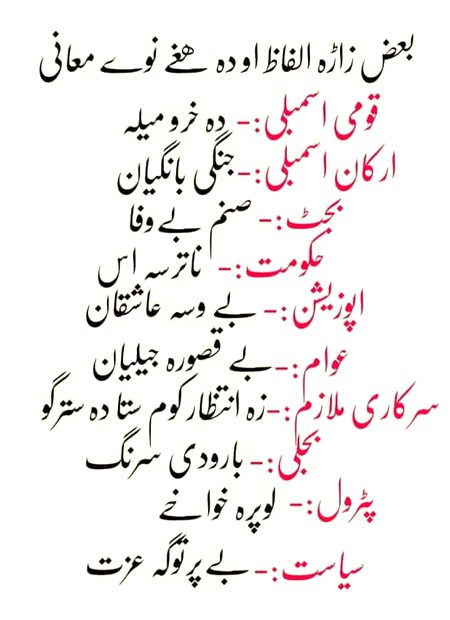 بعض زاڑہ الفاظ او دہ ھغے نوے معانی
قومی اسمبلی:- دہ خرو میلہ
ارکان اسمبلی:- جنگی بانگیان
بجٹ:- صنم بے وفا
حکومت:- ناترسہ اس
اپوزیشن:- بے وسہ عاشقان
عوام:- بے قصورہ جیلیان
سرکاری ملازم:- زہ انتظار کوم ستا دہ سترگو
بجلی:- بارودی سرنگ
پٹرول:- لوپرہ خواخے
سیاست:- بے پرتوگہ عزت